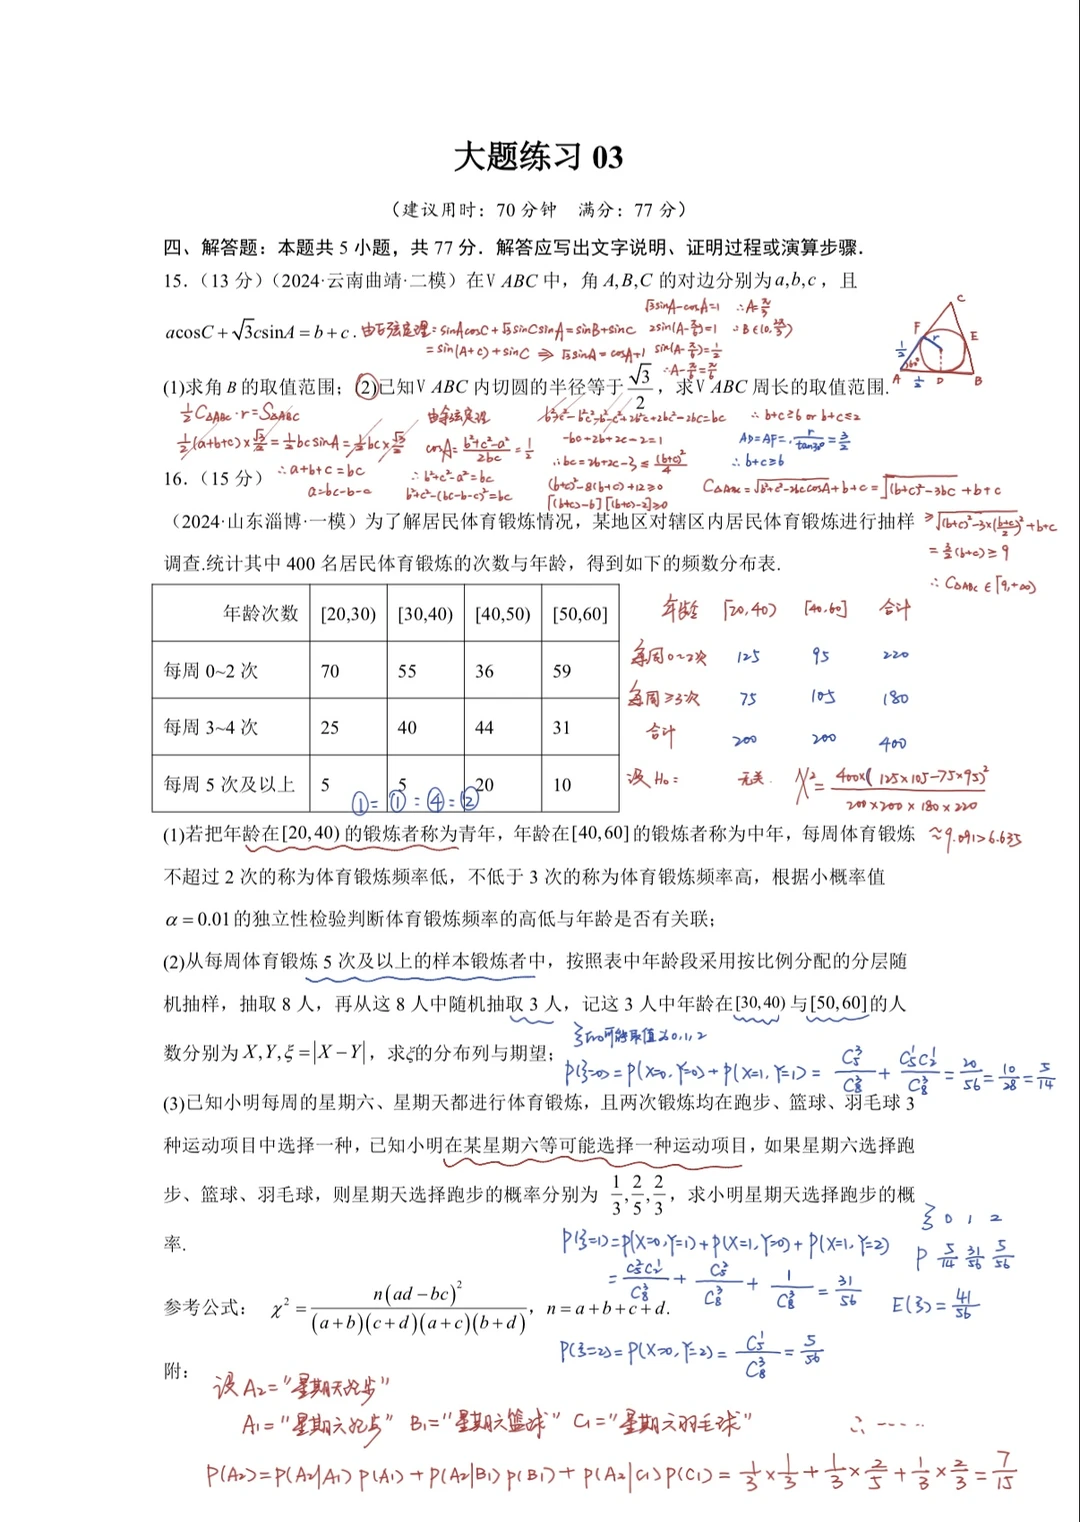 大题练习 03
（建议用时：70 分钟 满分：77 分）
四、解答题：本题共 5 小题，共 77 分．解答应写出文字说明、证明过程或演算步骤．
15.（13 分）（2024·云南曲靖·二模）在V ABC 中，角 A,B,C 的对边分别为 a,b,c ，且
acosC + √3csinA = b + c .
由正弦定理：sinAcosC+√3sinCsinA=sinB+sinC
=sin(A+C)+sinC ⇒ √3sinA=cosA+1
√3sinA-cosA=1 ∴A=π/3
2sin(A-π/6)=1 ∴B∈(0,2π/3)
sin(A-π/6)=1/2
∴A-π/6=π/6
C
F
E
r
1/2
60°
A 1/2 D B
(1)求角 B 的取值范围；(2)已知V ABC 内切圆的半径等于 √3/2 ，求V ABC 周长的取值范围.
1/2 C△ABC·r=S△ABC
1/2(a+b+c)×√3/2=1/2bcsinA=1/2bc×√3/2
∴a+b+c=bc
a=bc-b-c
由余弦定理
cosA=b²+c²-a²/2bc=1/2
∴b²+c²-a²=bc
b²+c²-(bc-b-c)²=bc
-bc+2b+2c-2=1
∴bc=2b+2c-3≤(b+c)²/4
(b+c)²-8(b+c)+12≥0
[(b+c)-6][(b+c)-2]≥0
∴b+c≥6 or b+c≤2
AD=AF=r/tan30°=3/2
∴b+c≥6
C△ABC=√b²+c²-2bccosA+b+c=√(b+c)²-3bc+b+c
≥√(b+c)²-3×(b+c/2)²+b+c
=3/2(b+c)≥9
∴C△ABC∈[9,+∞)
16.（15 分）
（2024·山东淄博·一模）为了解居民体育锻炼情况，某地区对辖区内居民体育锻炼进行抽样
调查.统计其中 400 名居民体育锻炼的次数与年龄，得到如下的频数分布表.
年龄次数 [20,30) [30,40) [40,50) [50,60]
每周 0~2 次 70 55 36 59
每周 3~4 次 25 40 44 31
每周 5 次及以上 5 5 20 10
①=①:④=②
年龄 [20,40) [40,60] 合计
每周0~2次 125 95 220
每周≥3次 75 105 180
合计 200 200 400
设H₀: 无关. χ²=400×(125×105-75×95)²/200×200×180×220
≈9.091>6.635
(1)若把年龄在[20,40) 的锻炼者称为青年，年龄在[40,60]的锻炼者称为中年，每周体育锻炼
不超过 2 次的称为体育锻炼频率低，不低于 3 次的称为体育锻炼频率高，根据小概率值
α = 0.01的独立性检验判断体育锻炼频率的高低与年龄是否有关联；
(2)从每周体育锻炼 5 次及以上的样本锻炼者中，按照表中年龄段采用按比例分配的分层随
机抽样，抽取 8 人，再从这 8 人中随机抽取 3 人，记这 3 人中年龄在[30,40) 与[50,60]的人
数分别为 X,Y,ξ = |X − Y|，求ξ的分布列与期望；
ξ的可能取值为0,1,2
P(ξ=0)=P(X=0,Y=0)+P(X=1,Y=1)=C₅³/C₈³+C₅¹C₂¹/C₈³=20/56=10/28=5/14
(3)已知小明每周的星期六、星期天都进行体育锻炼，且两次锻炼均在跑步、篮球、羽毛球 3
种运动项目中选择一种，已知小明在某星期六等可能选择一种运动项目，如果星期六选择跑
步、篮球、羽毛球，则星期天选择跑步的概率分别为 1/3,2/5,2/3，求小明星期天选择跑步的概
率.
P(ξ=1)=P(X=0,Y=1)+P(X=1,Y=0)+P(X=1,Y=2)
=C₅²C₂¹/C₈³+C₅²/C₈³+1/C₈³=31/56
ξ 0 1 2
P 5/14 31/56 5/56
E(ξ)=41/56
参考公式： χ² = n(ad−bc)²/(a+b)(c+d)(a+c)(b+d)， n = a + b + c + d.
P(ξ=2)=P(X=0,Y=2)=C₅¹/C₈³=5/56
附：
设A₂="星期天跑步"
A₁="星期六跑步" B₁="星期六篮球" C₁="星期六羽毛球" ∴ ……
P(A₂)=P(A₂|A₁)P(A₁)+P(A₂|B₁)P(B₁)+P(A₂|C₁)P(C₁)=1/3×1/3+1/3×2/5+1/3×2/3=7/15